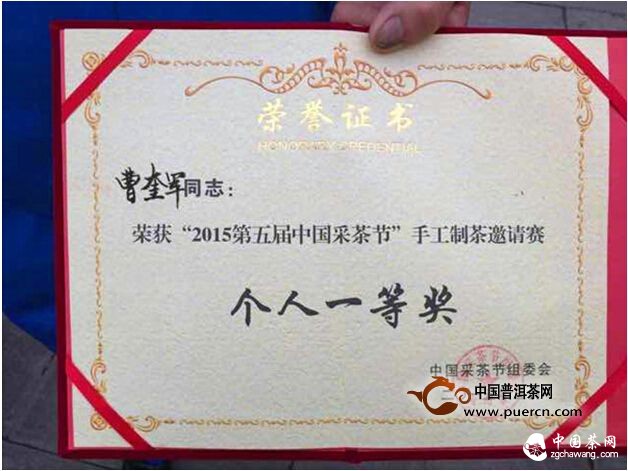 荣誉证书
HONORARY CREDENTIAL
曹奎军同志：
荣获“2015第五届中国采茶节”手工制茶邀请赛
个人一等奖
中国采茶节组委会
二
中国普洱茶网
www.puercn.com
中国茶网
zgchawang.com